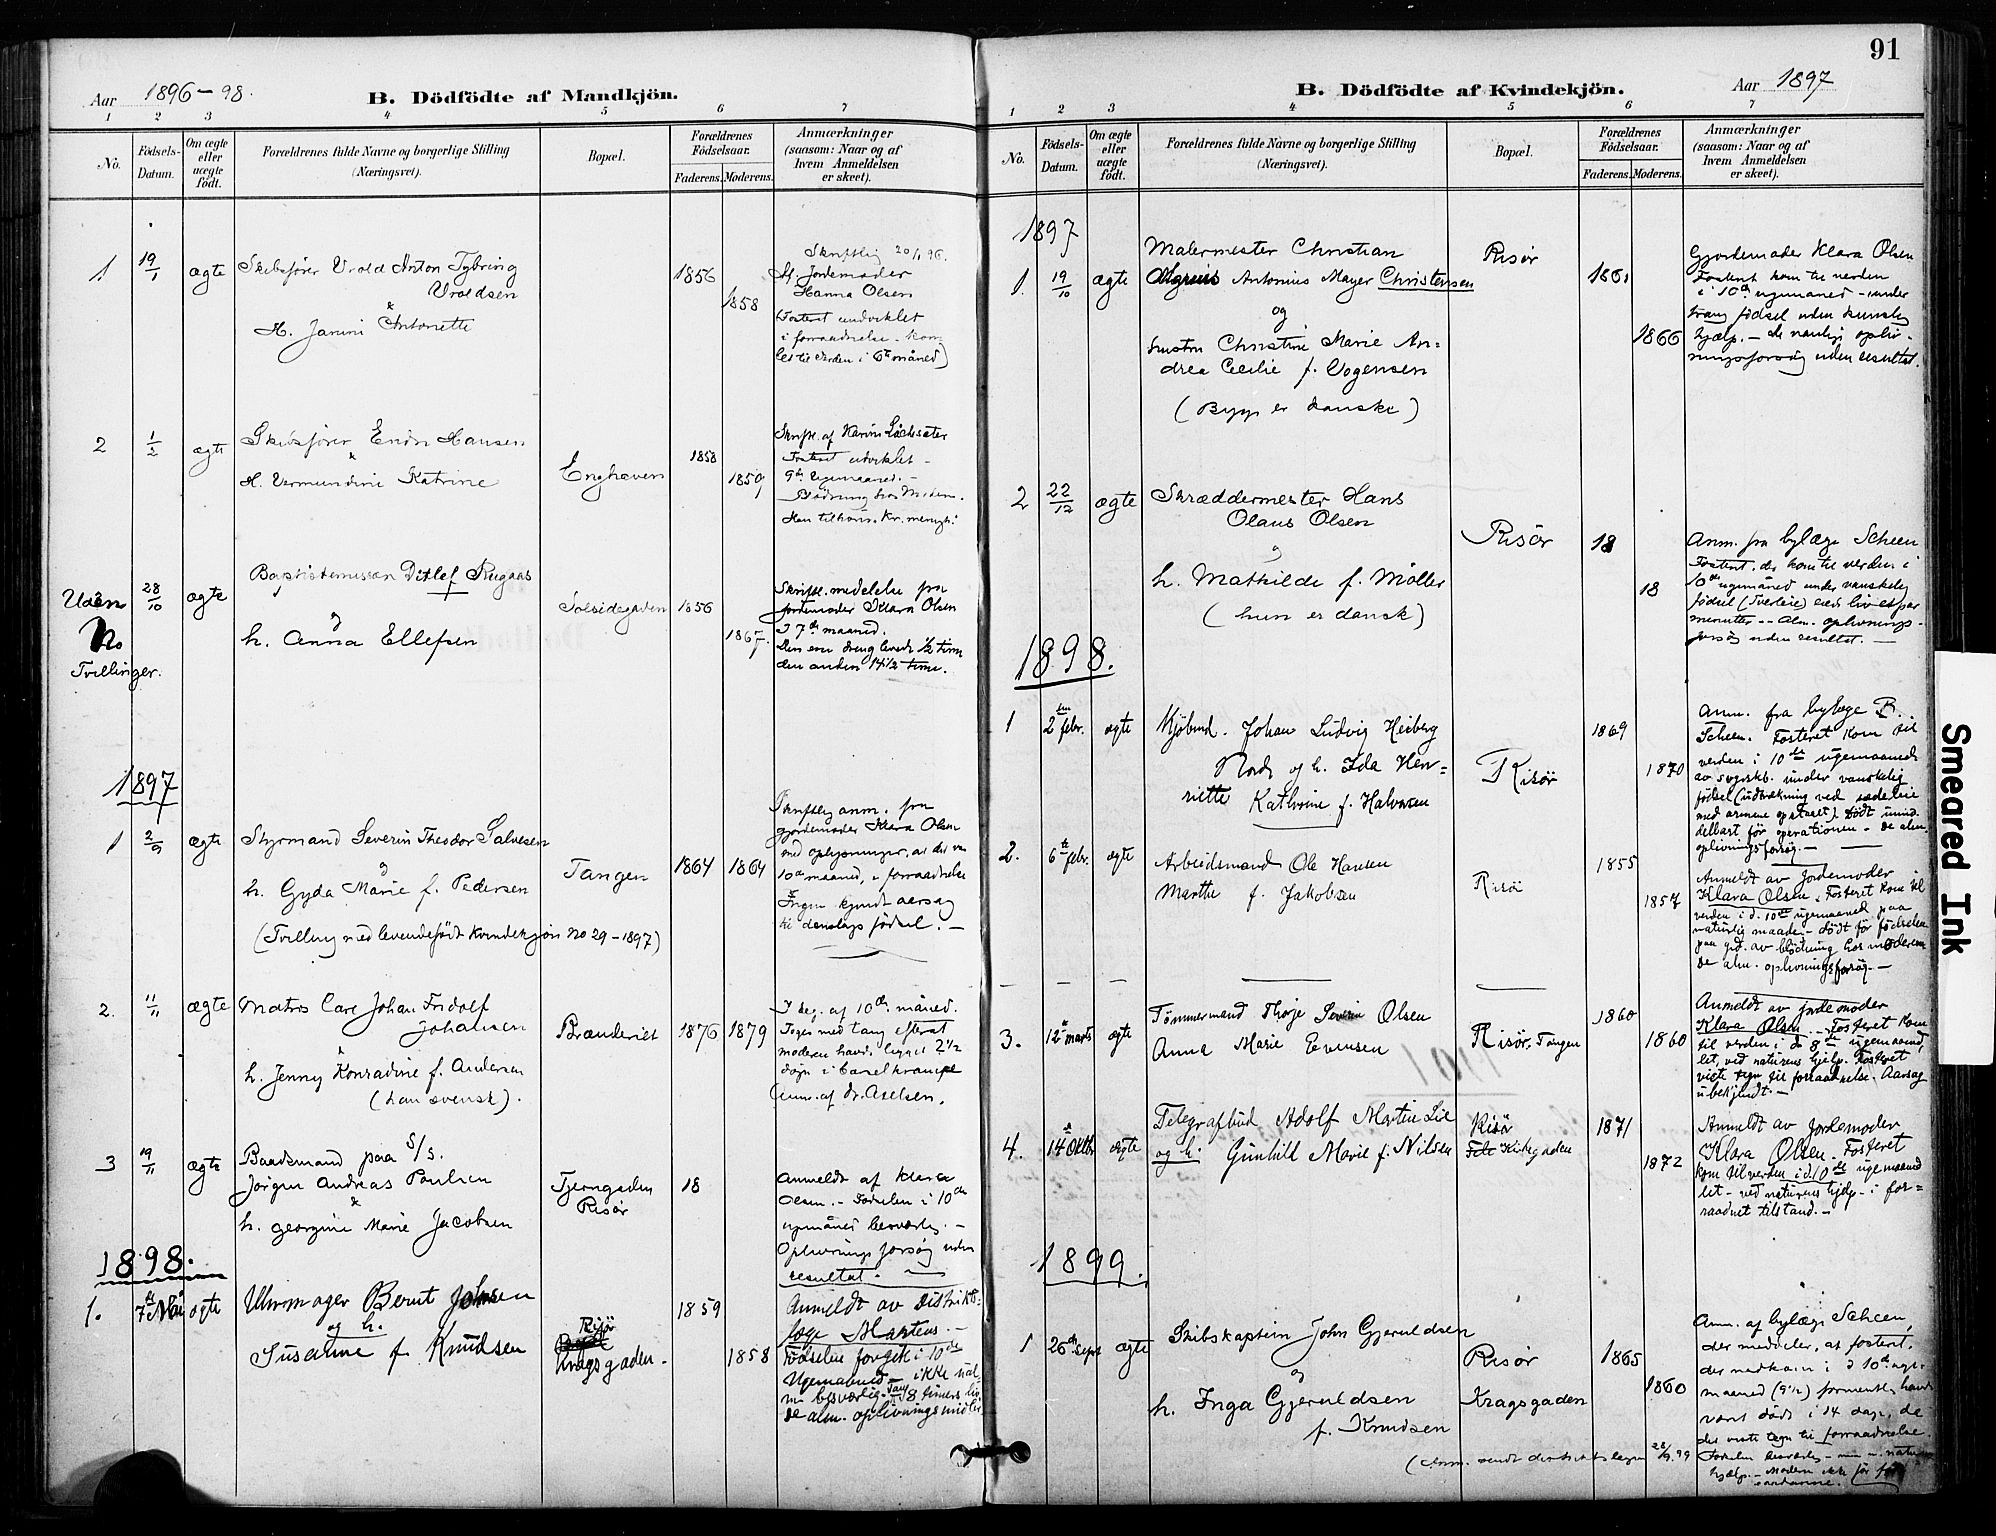 Aar 1896-98.
B. Dödfödte af Mandkjön.
1 2 3 4 5 6 7
No.
Födsels-
Datum.
Om ægte
eller
uægte
født.
Forældrenes fulde Navne og borgerlige Stilling
(Næringsvei).
Bopæl.
Forældrenes
Födselsaar.
Faderens. Moderens.
Anmærkninger
(saasom: Naar og af
hvem Anmeldelsen
er skeet).
1. 19/1 ægte Skibsfører Anton Tybring
Vroldsen
&
H. Antonette
1856
1858
Skriftlig 20/1 96.
Jordemoder
Hanna Olsen
Fosteret undviklet
i forraadnelse - kom
til Verden i 6te måned)
2 ægte Skibsfører Hansen
&
H. Vermundine Katrine
Enghaven
1858
1859
Skriftl. af Karine
Fosteret udviklet -
9de Ugemaaned. -
Uden
No
Tvillinger.
28/10 ægte
Ditlef
og
h. Anna Ellefsen
Solsidegaden 1856
1867.
Skriftl. meddelelse fra
jordemoder Klara Olsen
I 7de maaned.
Den ene dreng levede 1/2 time
den anden 14 1/2 time.
1897
1 2/9 ægte Styrmand Severin Theodor Salvesen
og
h. Gyda Marie f. Pedersen
(Tvilling med levendefödt Kvindekjøn No 29-1897)
Tangen 1864 1864
Skriftlig anm. fra
gjordemoder Klara Olsen
med oplysninger, at det var
10de maaned, i forraadnelse
&
Ingen kjendt aarsag
til denslags fødsel. -
2. 11/11 ægte Matros Carl Johan Fridolf
Johansen
&
h. Jenny Konradine f. Andersen
(han svensk).
1876 1879
I beg. af 10de måned.
Tagen med tang efterat
moderen havde ligget 2 1/2
døgn i barselkrampe
Anm. af dr. Axelsen.
3 19/11 ægte Baadsmand paa S/S.
Jørgen Andreas Poulsen
&
h. Georgine Marie Jacobsen
Tjerngaden
Risør
18
Anmeldt af Klara
Olsen. - Fødselen i 10de
ugemåned besværlig. -
Oplivnings forsøg uden
resultat. -
1898.
1. 7de Mai ægte Uhrmager Bernt Johnsen
og h.
Susanne f. Knudsen
Risør
Kragsgaden.
1859
1858
Anmeldt av Distrikts-
læge Martens. -
Fødselen foregik i 10de
Ugemaaned - ikke
besværlig. -
De alm. oplivningsmidler
91
B. Dödfödte af Kvindekjön.
Aar 1897
1 2 3 4 5 6 7
No.
Födsels-
Datum.
Om ægte
eller
uægte
født.
Forældrenes fulde Navne og borgerlige Stilling
(Næringsvei).
Bopæl.
Forældrenes
Födselsaar.
Faderens. Moderens.
Anmærkninger
(saasom: Naar og af
hvem Anmeldelsen
er skeet).
1897
1. 19/10 ægte Malermester Christian
Antonius Mayer Christensen
og
hustru Christine Marie An-
drea Cecilie f. Vogensen
(Begge er danske)
Risør
1861
1866
Gjordemoder Klara Olsen
Fosteret kom til verden
i 10de ugemaaned - under
trang fødsel uden kunstig
hjælp. - de vanlige opliv-
ningsforsøg uden resultat.
2 22/12 ægte Skræddermester Hans
Olaus Olsen
og
h. Mathilde f. Møller
(hun er dansk)
Risør
18
18
Anm. fra bylæge Scheen
Fosteret, der kom til verden i
10de ugemåned under vanskelig
fødsel (Tverleie) endt liv et par
minutter - Alm. oplivnings-
forsøg uden resultat. -
1898.
1 2den febr. ægte Kjøbmd. Johan Ludvig Heiberg
og h. Ida Hen-
riette Kathrine f. Halvorsen
Risør
1869
1870
Anm. fra bylæge B.
Scheen. Fosteret kom til
verden i 10de ugemaaned
under vanskelig
fødsel (udtrækning ved sædeleie
med armene opstrakt). Dødt umid-
delbart før operationen - De alm.
oplivningsforsøg. -
2. 6te febr. ægte Arbeidsmand Ole Hansen
Marthe f. Jakobsen
Risør
1855
1857
Anmeldt av Jordemoder
Klara Olsen. Fosteret kom til
verden i d. 10de ugemaaned paa
naturlig maade. - dødt før fødselen
paa grd. av blødning hos moderen
De alm. oplivningsforsøg. -
3. 12te marts ægte Tømmermand Severin Olsen
Anna Marie Evensen
Risør, Tangen
1860
1860
Anmeldt av jordemoder
Klara Olsen. - Fosteret kom
til verden i d. 8de ugemaaned,
let, ved naturens hjælp. Fosteret
viste tegn til forraadnelse. Aarsag
ubekjendt. -
4. 14de Oktbr ægte Telegrafbud Adolf Martin Lie
og h. Gunhild Marie f. Nilsen
Risør
Kirkegaden
1871
1872
Anmeldt av jordemoder
Klara Olsen. Fosteret
kom til verden i d. 10de ugemaaned
let - ved naturens hjelp - i for-
raadnet tilstand. -
1899.
1 26de Sept ægte Skibskaptein John Gjeruldsen
og
h. Inga Gjeruldsen
f. Knudsen
Risør
Kragsgaden
1865
1860
Anm. af bylæge Scheen,
der meddeler, at fosteret,
der nedkom i d 10de uge-
maaned (9 1/2) formentlig havde
været dødt i 14 dage, da
det viste tegn til forraadnelse
Smeared Ink